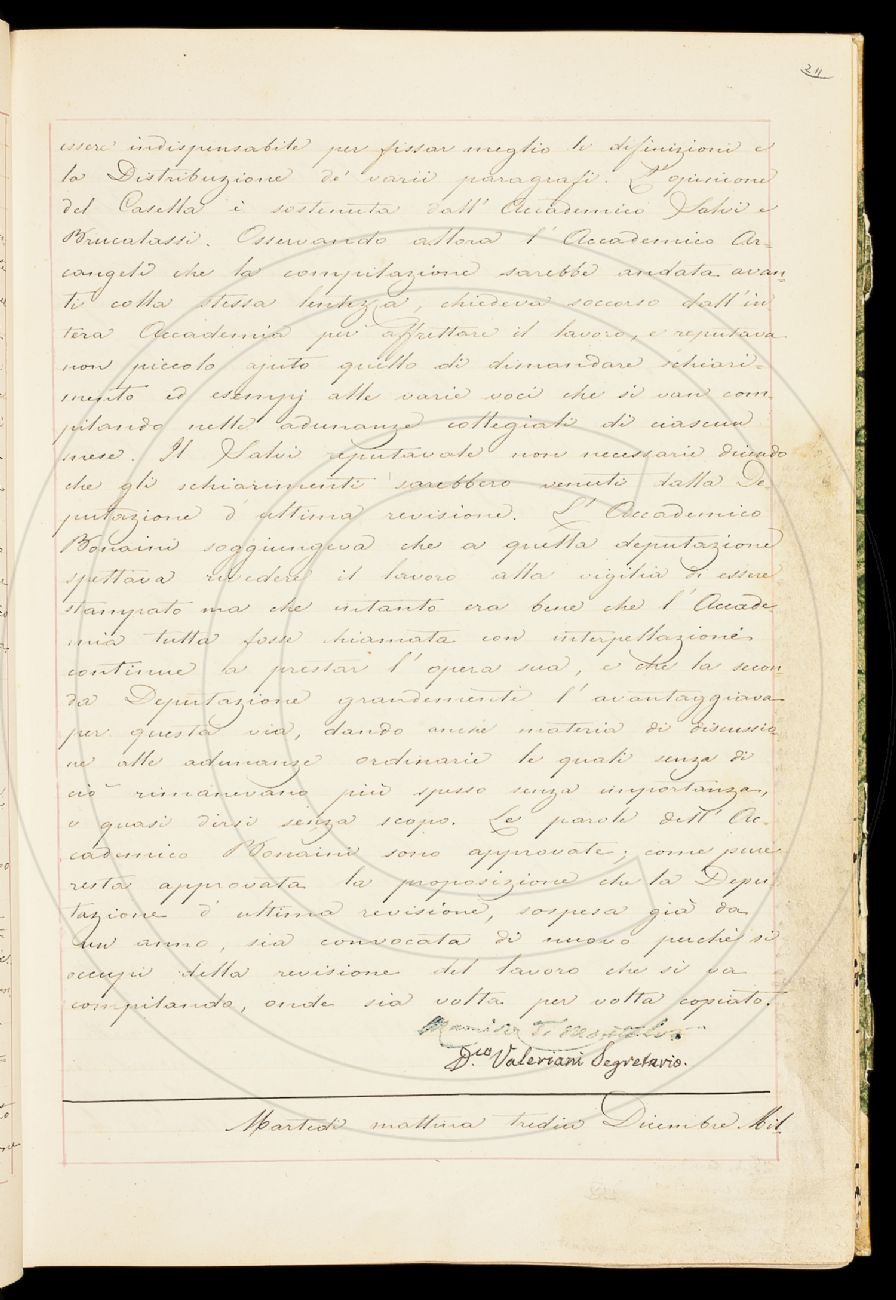 211
essere indispensabile per fissar meglio le difinizioni e
la Distribuzione de' varii paragrafi. L'opinione
del Casella è sostenuta dall'Accademico Salvi e
Brucalassi. Osservando allora l'Accademico Ar-
cangeli che la compilazione sarebbe andata avan-
ti colla stessa lentezza, chiedeva soccorso dall'in
tera Accademia per affrettare il lavoro, e reputava
non piccolo ajuto quello di dimandare schiari-
mento ed esempj alle varie voci che si van com-
pilando nelle adunanze collegiali di ciascun
mese. Il Salvi reputavale non necessarie dicendo
che gli schiarimenti sarebbero venuti dalla De-
putazione d'ultima revisione. L'Accademico
Bonaini soggiungeva che a quella deputazione
spettava rivedere il lavoro alla vigilia di essere
stampato ma che intanto era bene che l'Accade
mia tutta fosse chiamata con interpellazioni
continue a prestar l'opera sua, e che la secon
da Deputazione grandemente l'avantaggiava
per questa via, dando anche materia di discussio
ne alle adunanze ordinarie le quali senza di
ciò rimanevano più spesso senza importanza,
o quasi dirsi senza scopo. Le parole dell'Ac-
cademico Bonaini sono approvate; come pure
resta approvata la proposizione che la Depu
tazione d'ultima revisione, sospesa già da
un anno, sia convocata di nuovo perchè si
occupi della revisione del lavoro che si va
compilando, onde sia volta per volta copiato.
D.co Valeriani Segretario.
Martedì mattina tredici Dicembre Mil